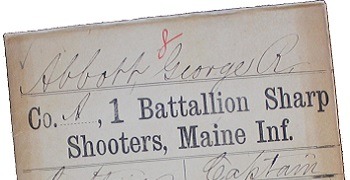 8
Abbott George R.
Co. A, 1 Battallion Sharp
Shooters, Maine Inf.
Captain